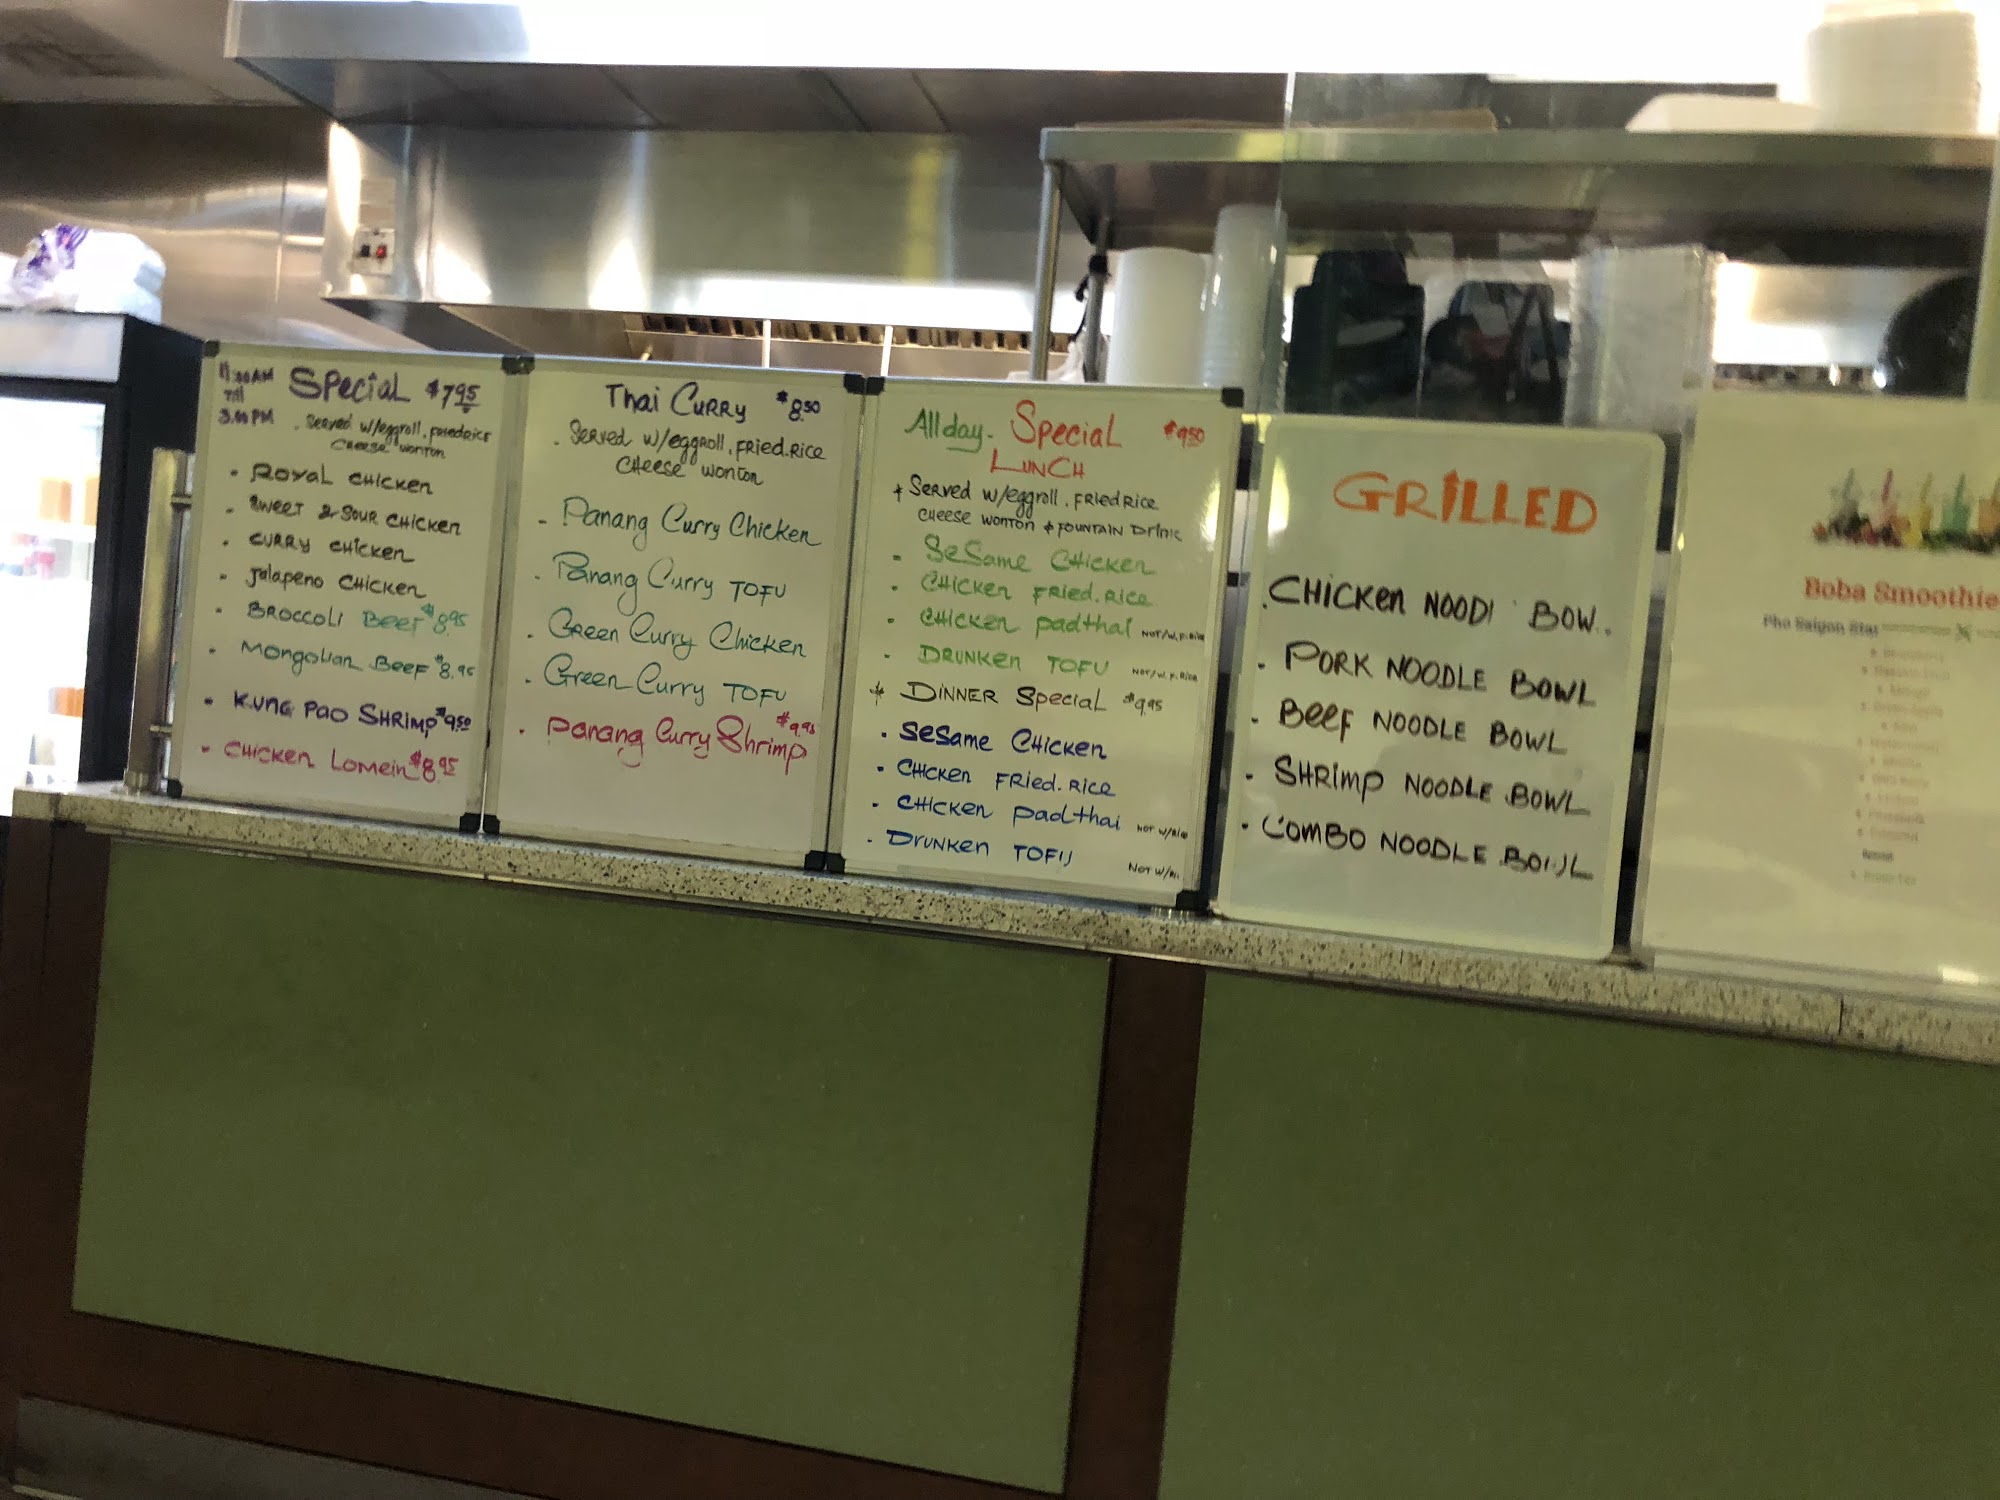 11:00AM
Till
3:00PM
Special $7.95
. Served w/eggroll, Fried Rice
Cheese wonton
- Royal Chicken
- Sweet & Sour Chicken
- Curry Chicken
- Jalapeno Chicken
- Broccoli Beef $8.95
- Mongolian Beef $8.95
- Kung Pao Shrimp $9.50
- Chicken Lomein $8.95
Thai Curry $8.50
. Served w/eggroll, Fried.Rice
Cheese wonton
- Panang Curry Chicken
- Panang Curry TOFU
- Green Curry Chicken
- Green Curry TOFU
- Panang Curry Shrimp $9.95
All day. Special $9.50
Lunch
+ Served w/eggroll, Fried Rice
Cheese wonton & Fountain Drink
- Sesame Chicken
- Chicken Fried.Rice
- Chicken padthai NOT/W. F. Rice
- Drunken TOFU NOT/W. F. Rice
+ Dinner Special $9.95
- Sesame Chicken
- Chicken Fried.Rice
- Chicken padthai NOT W/Rice
- Drunken TOFU NOT W/Ri.
GRILLED
. CHICKEN NOODL BOW..
- PORK NOODLE BOWL
- Beef NOODLE BOWL
- SHRimp NOODLE BOWL
- COMBO NOODLE BOWL
Boba Smoothie
Pho Saigon Star